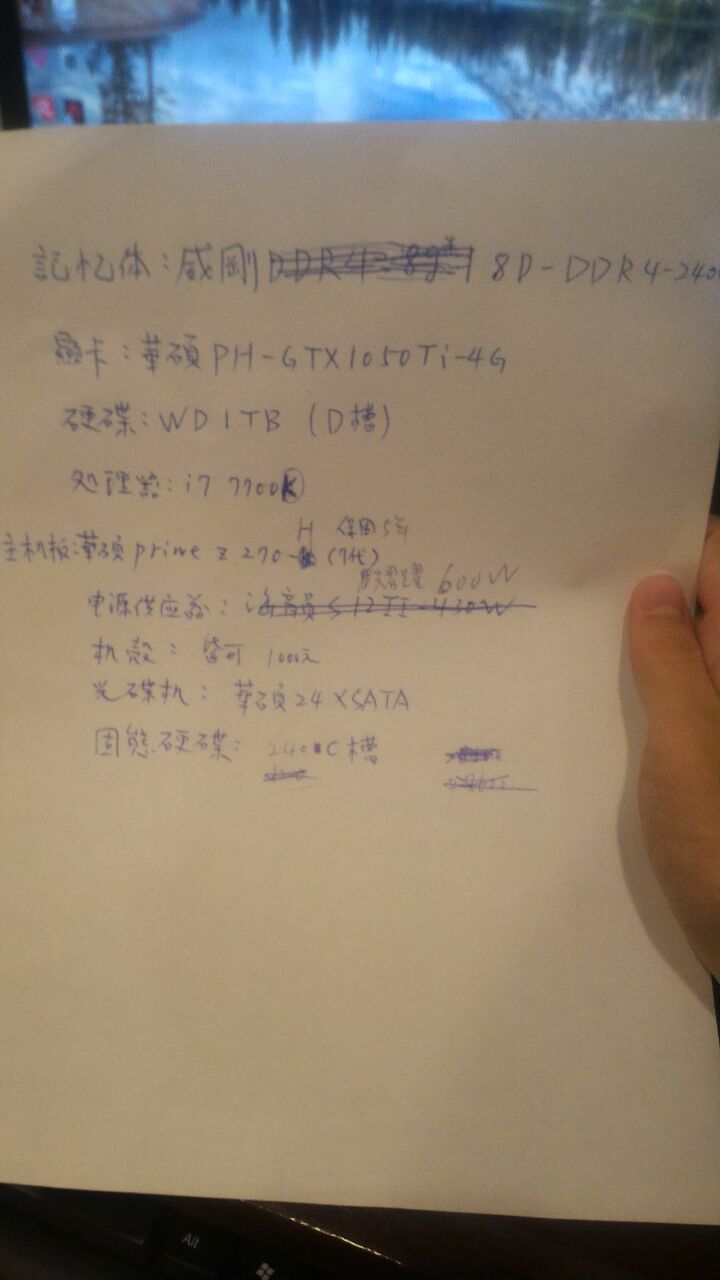 記忆体：威剛 8D-DDR4-240
顯卡：華碩 PH-GTX1050Ti-4G
硬碟：WD 1TB (D槽)
处理器：i7 7700K
H 保固5年
主机板：華碩 prime z 270- (7代)
600W
电源供应器：
机壳：皆可 1000元
光碟机：華碩24XSATA
固態硬碟：240 C槽
Alt